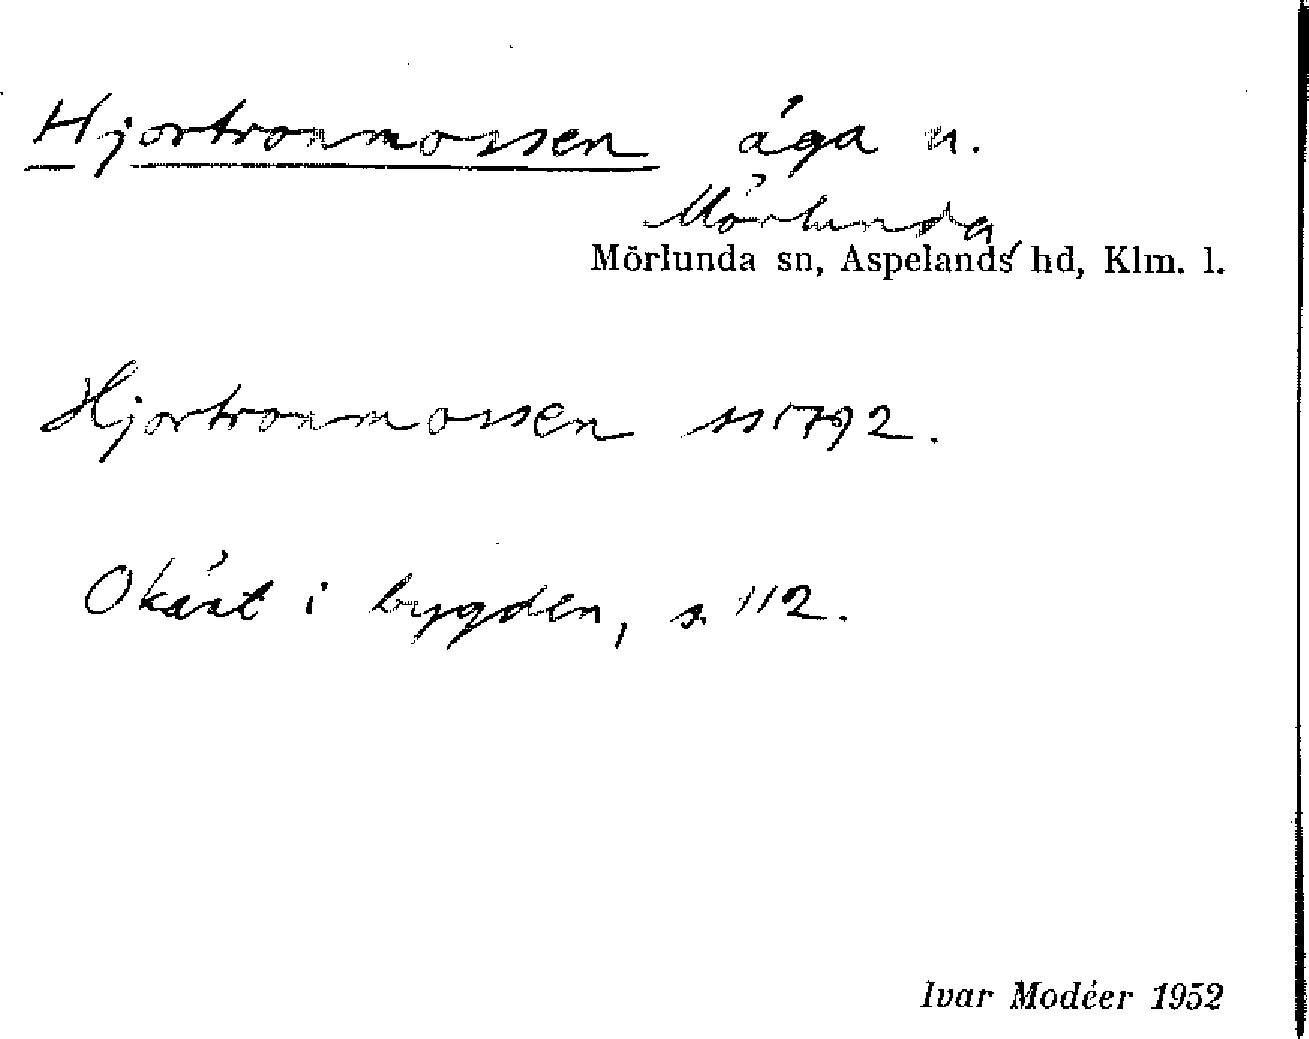 Hjortronmossen äga u.
Mörlunda
Mörlunda sn, Aspelands hd, Klm. l.
Hjortronmossen ss 1792.
Okänt i bygden, s. 112.
Ivar Modéer 1952